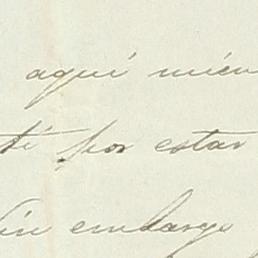 aquí mién
tí por estar
Sin embargo